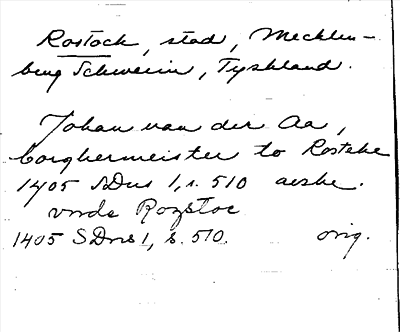 Rostock, stad, Mecklen-
burg Schwerin, Tyskland.
Johan van der Aa,
borghermeister to Rosteke
1405 SDns 1, s. 510 aeske.
vnde Rozstoc
1405 SDns 1, s. 510. orig.